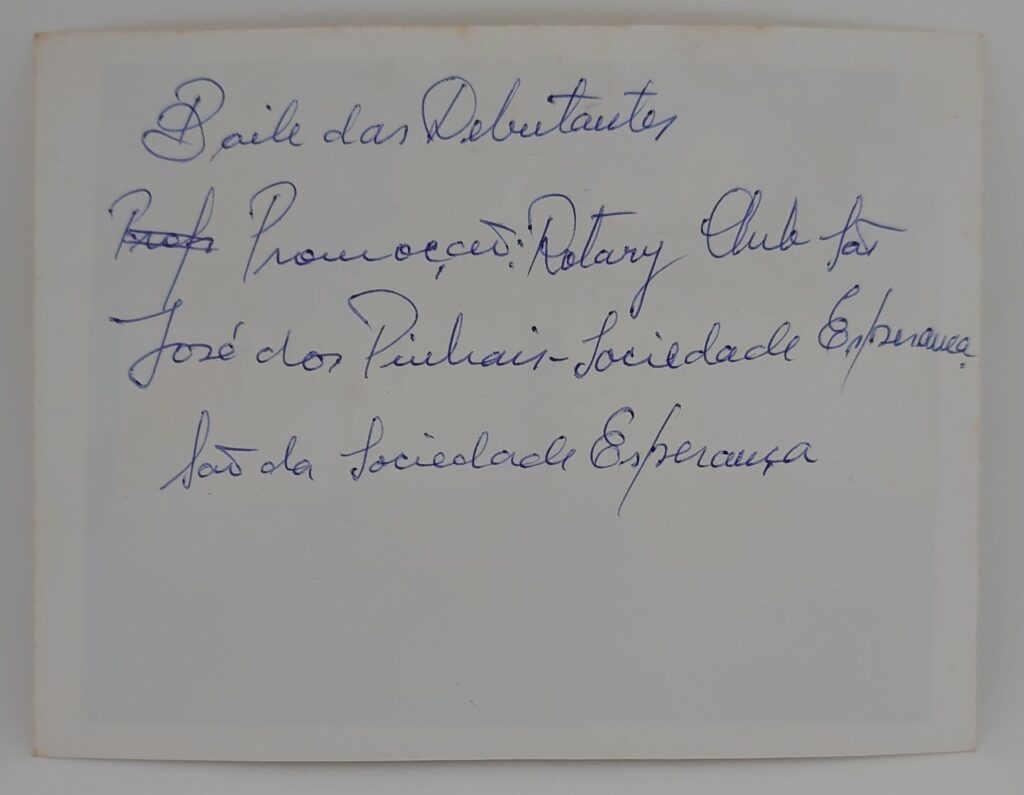 Baile das Debutantes
Prof Promoção: Rotary Club São
José dos Pinhais - Sociedade Esperança
São da Sociedade Esperança